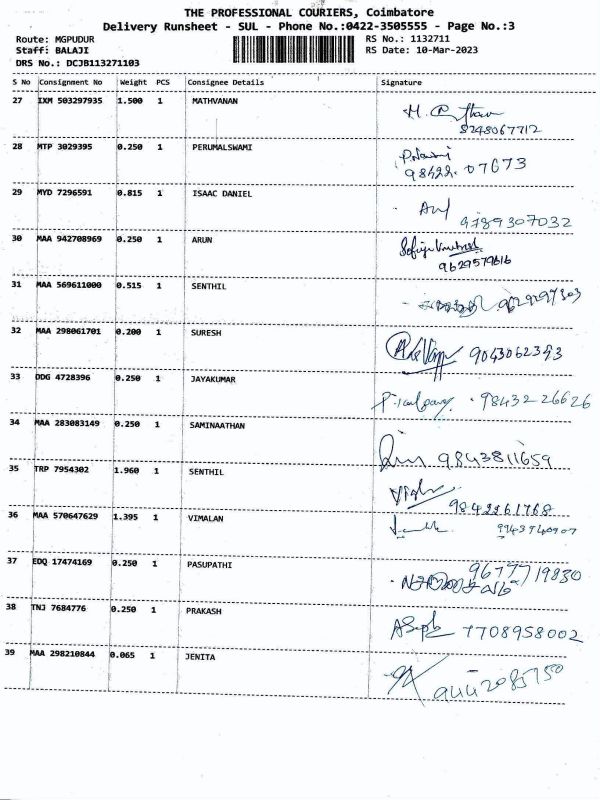 THE PROFESSIONAL COURIERS, Coimbatore
Delivery Runsheet - SUL - Phone No.:0422-3505555 - Page No.:3
Route: MGPUDUR RS No.: 1132711
Staff: BALAJI RS Date: 10-Mar-2023
DRS No.: DCJB113271103
S No Consignment No Weight PCS Consignee Details Signature
27 IXM 503297935 1.500 1 MATHVANAN
8248067712
28 MTP 3029395 0.250 1 PERUMALSWAMI
98422.07673
29 MYD 7296591 0.815 1 ISAAC DANIEL
9789307032
30 MAA 942708969 0.250 1 ARUN
9629579616
31 MAA 569611000 0.515 1 SENTHIL
9629297303
32 MAA 298061701 0.200 1 SURESH
9043062393
33 DDG 4728396 0.250 1 JAYAKUMAR
9843226626
34 MAA 283083149 0.250 1 SAMINAATHAN
9843811659
35 TRP 7954302 1.960 1 SENTHIL
9842261768
36 MAA 570647629 1.395 1 VIMALAN
9943740907
37 EDQ 17474169 0.250 1 PASUPATHI
9677719830
38 TNJ 7684776 0.250 1 PRAKASH
7708958002
39 MAA 298210844 0.065 1 JENITA